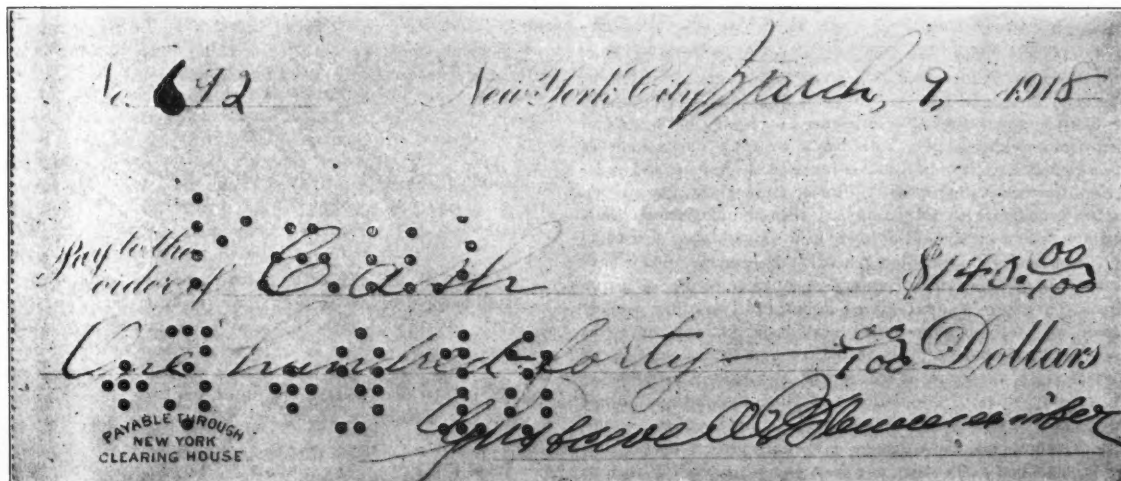 No. 692 New York City, March, 9, 1918
Pay to the
order of Cash $140.00/100
One hundred forty 00/100 Dollars
PAYABLE THROUGH
NEW YORK
CLEARING HOUSE